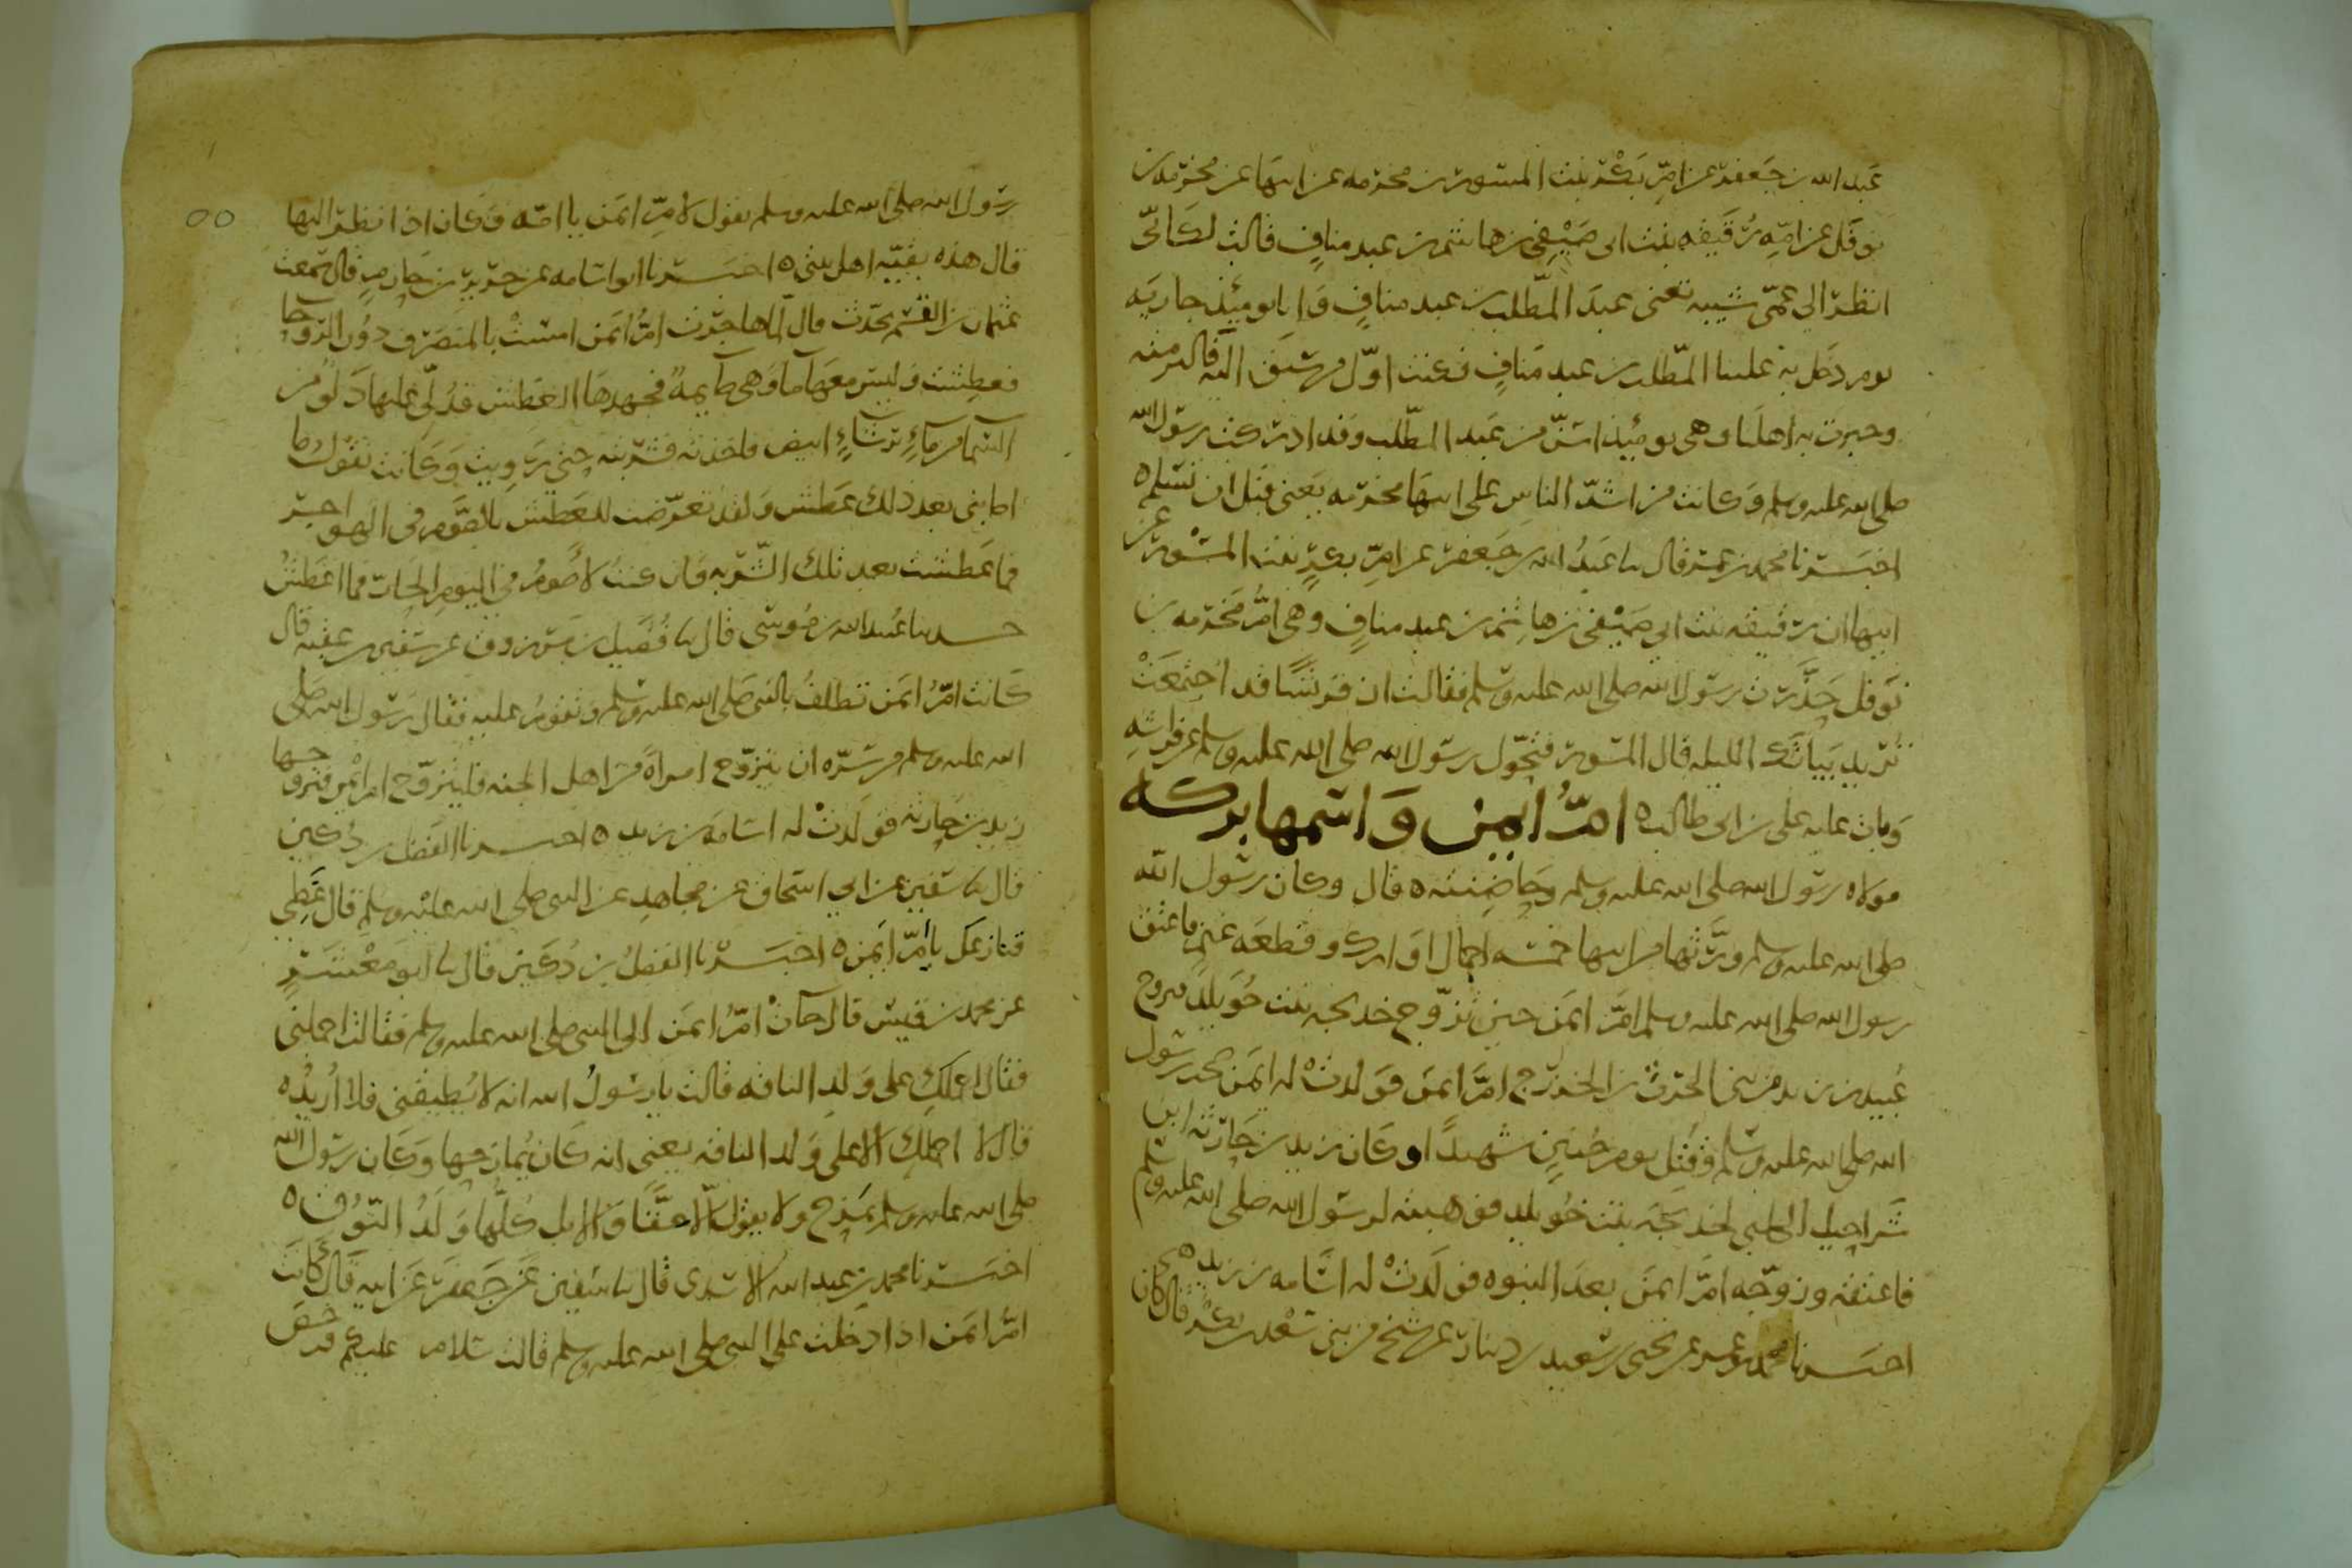 عبد الله بن جعفر عن امّ بكر بنت المسور بن مخرمه عن ابيها عن مخرمه بن
نوفل عن امّه رُقيقه بنت ابى صَيْفِى بن هاشم بن عبد منافٍ قالت لكانّى
انظر الى عمّى شيبه تعنى عبدَ المطّلب بن عبد منافٍ وَانا يومئذٍ جاريَه
يوم دخل به علينا المطّلب بن عبد مَنافٍ فكنت اوّل من سَبَق اليه فالتزمته
وخبرت به اهلنا وهى يومئِيذ اسَنّ من عَبد المطّلب وقد ادركت رسول الله
صلى الله عليه وسلم وَكانت من اشدّ الناسِ على ابنها مخرمه يَعنى قبل ان نُسلم ه
اخبَــرنا محمد بن عمر قال نا عَبدُ الله بن جَعفر عن امّ بكرٍ بنت المسْور عن
ابيها ان رقيقه بنت ابى صَيْفى بن هاشِم بن عبد منافٍ وهى امُّ مَخرَمه بن
نَوفل حَذَّرت رسول الله صلى الله عليه وسلم فقالت ان قريشًا قد اجتمَعَتْ
تُريد بيَاتَك الليله قال المسور فتحوّل رسَول الله صلى الله عليه وسلم عن فراشِهِ
وَبات عليه على بن ابى طالب ه امُّ ايمن وَاسمها بركه
مولاه رسول الله صلى الله عليه وسلم وحَاضِنته ه قال وكان رسول الله
صلى الله عليه وسلم وَرَّثها من ابيها خمسه اجمال اوَارك وقطعَه غنم فاعتق
رسول الله صلى الله عليه وسلم امَّ ايمَن حين تزوّج خديجه بنت خُوَيلد فتزوج
عُبيد بن زيد من بنى الحرث بن الخزرج امَّ ايمن فوَلدتْ له ايمَن صحب رسول
الله صلى الله عليه وسلم وقُتِل يوم حُنينٍ شهيدًا وكَان زيد بن حَارثه ابن
شَراحيل الكلبى لخديجه بنت خُويلد فوهبته لرسول الله صلى الله عليه وسلم
فاعتقه وزوّجه امَّ ايمنَ بعدَ النبوه فوَلدتْ له اسَامه بن زيد ه
اخبَــرنا محمد بن عمر عن يحيى بن سعيد بن دينار عن شيخ من بنى سَعْد بن بكر قال كان
رسول الله صلى الله عليه وسلم يقول لامّ ايمَن يا امّه وَكان اذا نظر اليها
قال هذه بقيّه اهل بيتى ه اخبَــرنا ابو اسَامه عن جرير بن حَازمٍ قال سَمعت
عثمان بن القسم يحدّث قال لمّا هاجرت امُّ ايمَن امسَتْ بالمنصَرف دوُن الرّوحا
فعطِشت وَليسَ معَها ما وَهى صَايمهٌ فجهدهَا العَطش فدُلّى عليها دَلوٌ من
السّما من ماءٍ برشاءٍ ابيض فاخذته فشربته حتى رَوِيت وَكانت تقول ما
اصابنى بعد ذلك عَطش وَلقد تعرّضت للعَطش بالصَّوم فى الهواجر
فما عَطشت بعد تلك الشّربه وَان كنتُ لاصُومُ فى اليوم الحَارّ فما اعطَشُ
حــدثنا عُبيد الله بن مُوسَى قال نا فُضَيل بن مرزوق عن سفين بن عقبه قال
كَانت امُّ ايمَن تلطفُ بالنبى صَلى الله عليه وسلم وتقومُ عليه فقال رَسُول الله صَلى
الله عليه وسلم من سَرّه ان يتزوّج امراةً من اهل الجنه فليتزوّج ام ايمن فتزوجها
زيد بن حَارثه فوَلدتْ له اسَامَه بن زيد ه اخبــرنا الفضل بن دُكين
قال نا سفين عن ابى اسحاق عن مجاهدٍ عن النبى صلى الله عليْه وسلم قال غَطّى
قناعك يا امَّ ايمَن ه اخبَــرْنا الفضلُ بن دُكَين قال نا ابو مَعْشَرٍ
عن محمد بن قيس قال جَات امّ ايمَن الى النبى صلى الله عليه وسلم فقالت احملنى
فقال احملكِ على وَلدِ الناقه قالت يا رسُولُ الله انه لا يُطيقنى فلا اُريدُه
قال لا احملك الا على وَلد الناقه يعنى انه كَان يُمازحها وَكَان رسول الله
صلى الله عليه وسلم يَمزح ولا يقول الّا حقًّا وَالابل كُلّها وَلدُ النُوق ه
اخبَــرنا محمد بن عبد الله الاسَدى قال نا سُفين عَن جَعفر عَن ابيه قال كانَت
امُّ ايمَن اذا دخلت على النبى صلى الله عليه وسلم قالت سَلام عليكم فرخّص